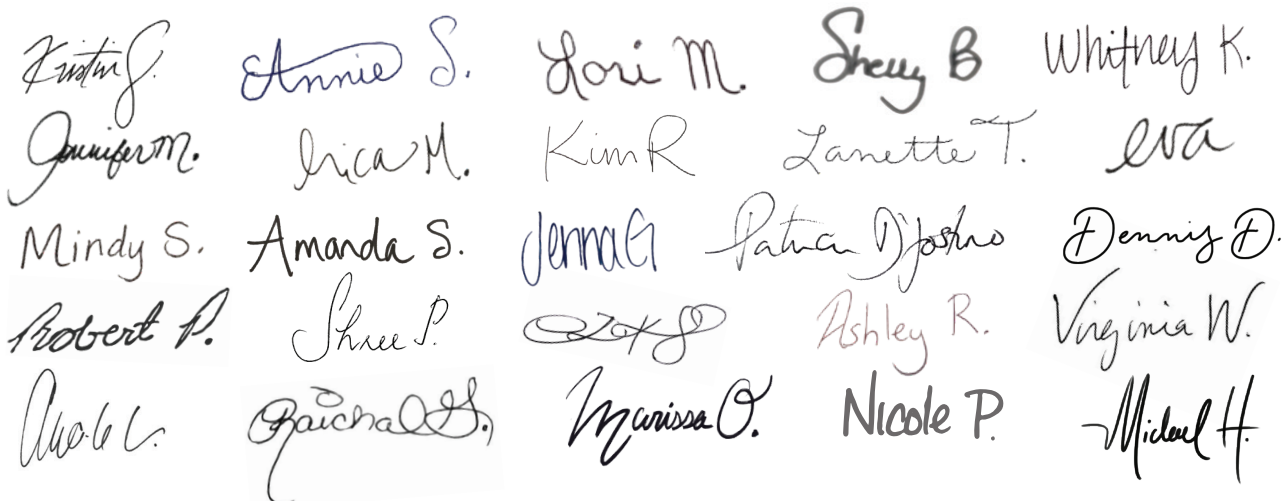 Kristin S. Annie S. Lori M. Sherry B Whitney K.
Jennifer M. Erica M. Kim R Lanette T. eva
Mindy S. Amanda S. Jenna G Patricia Dennis D.
Robert P. Shree P. Ashley R. Virginia W.
Raichal G. Marissa O. Nicole P. Michael H.